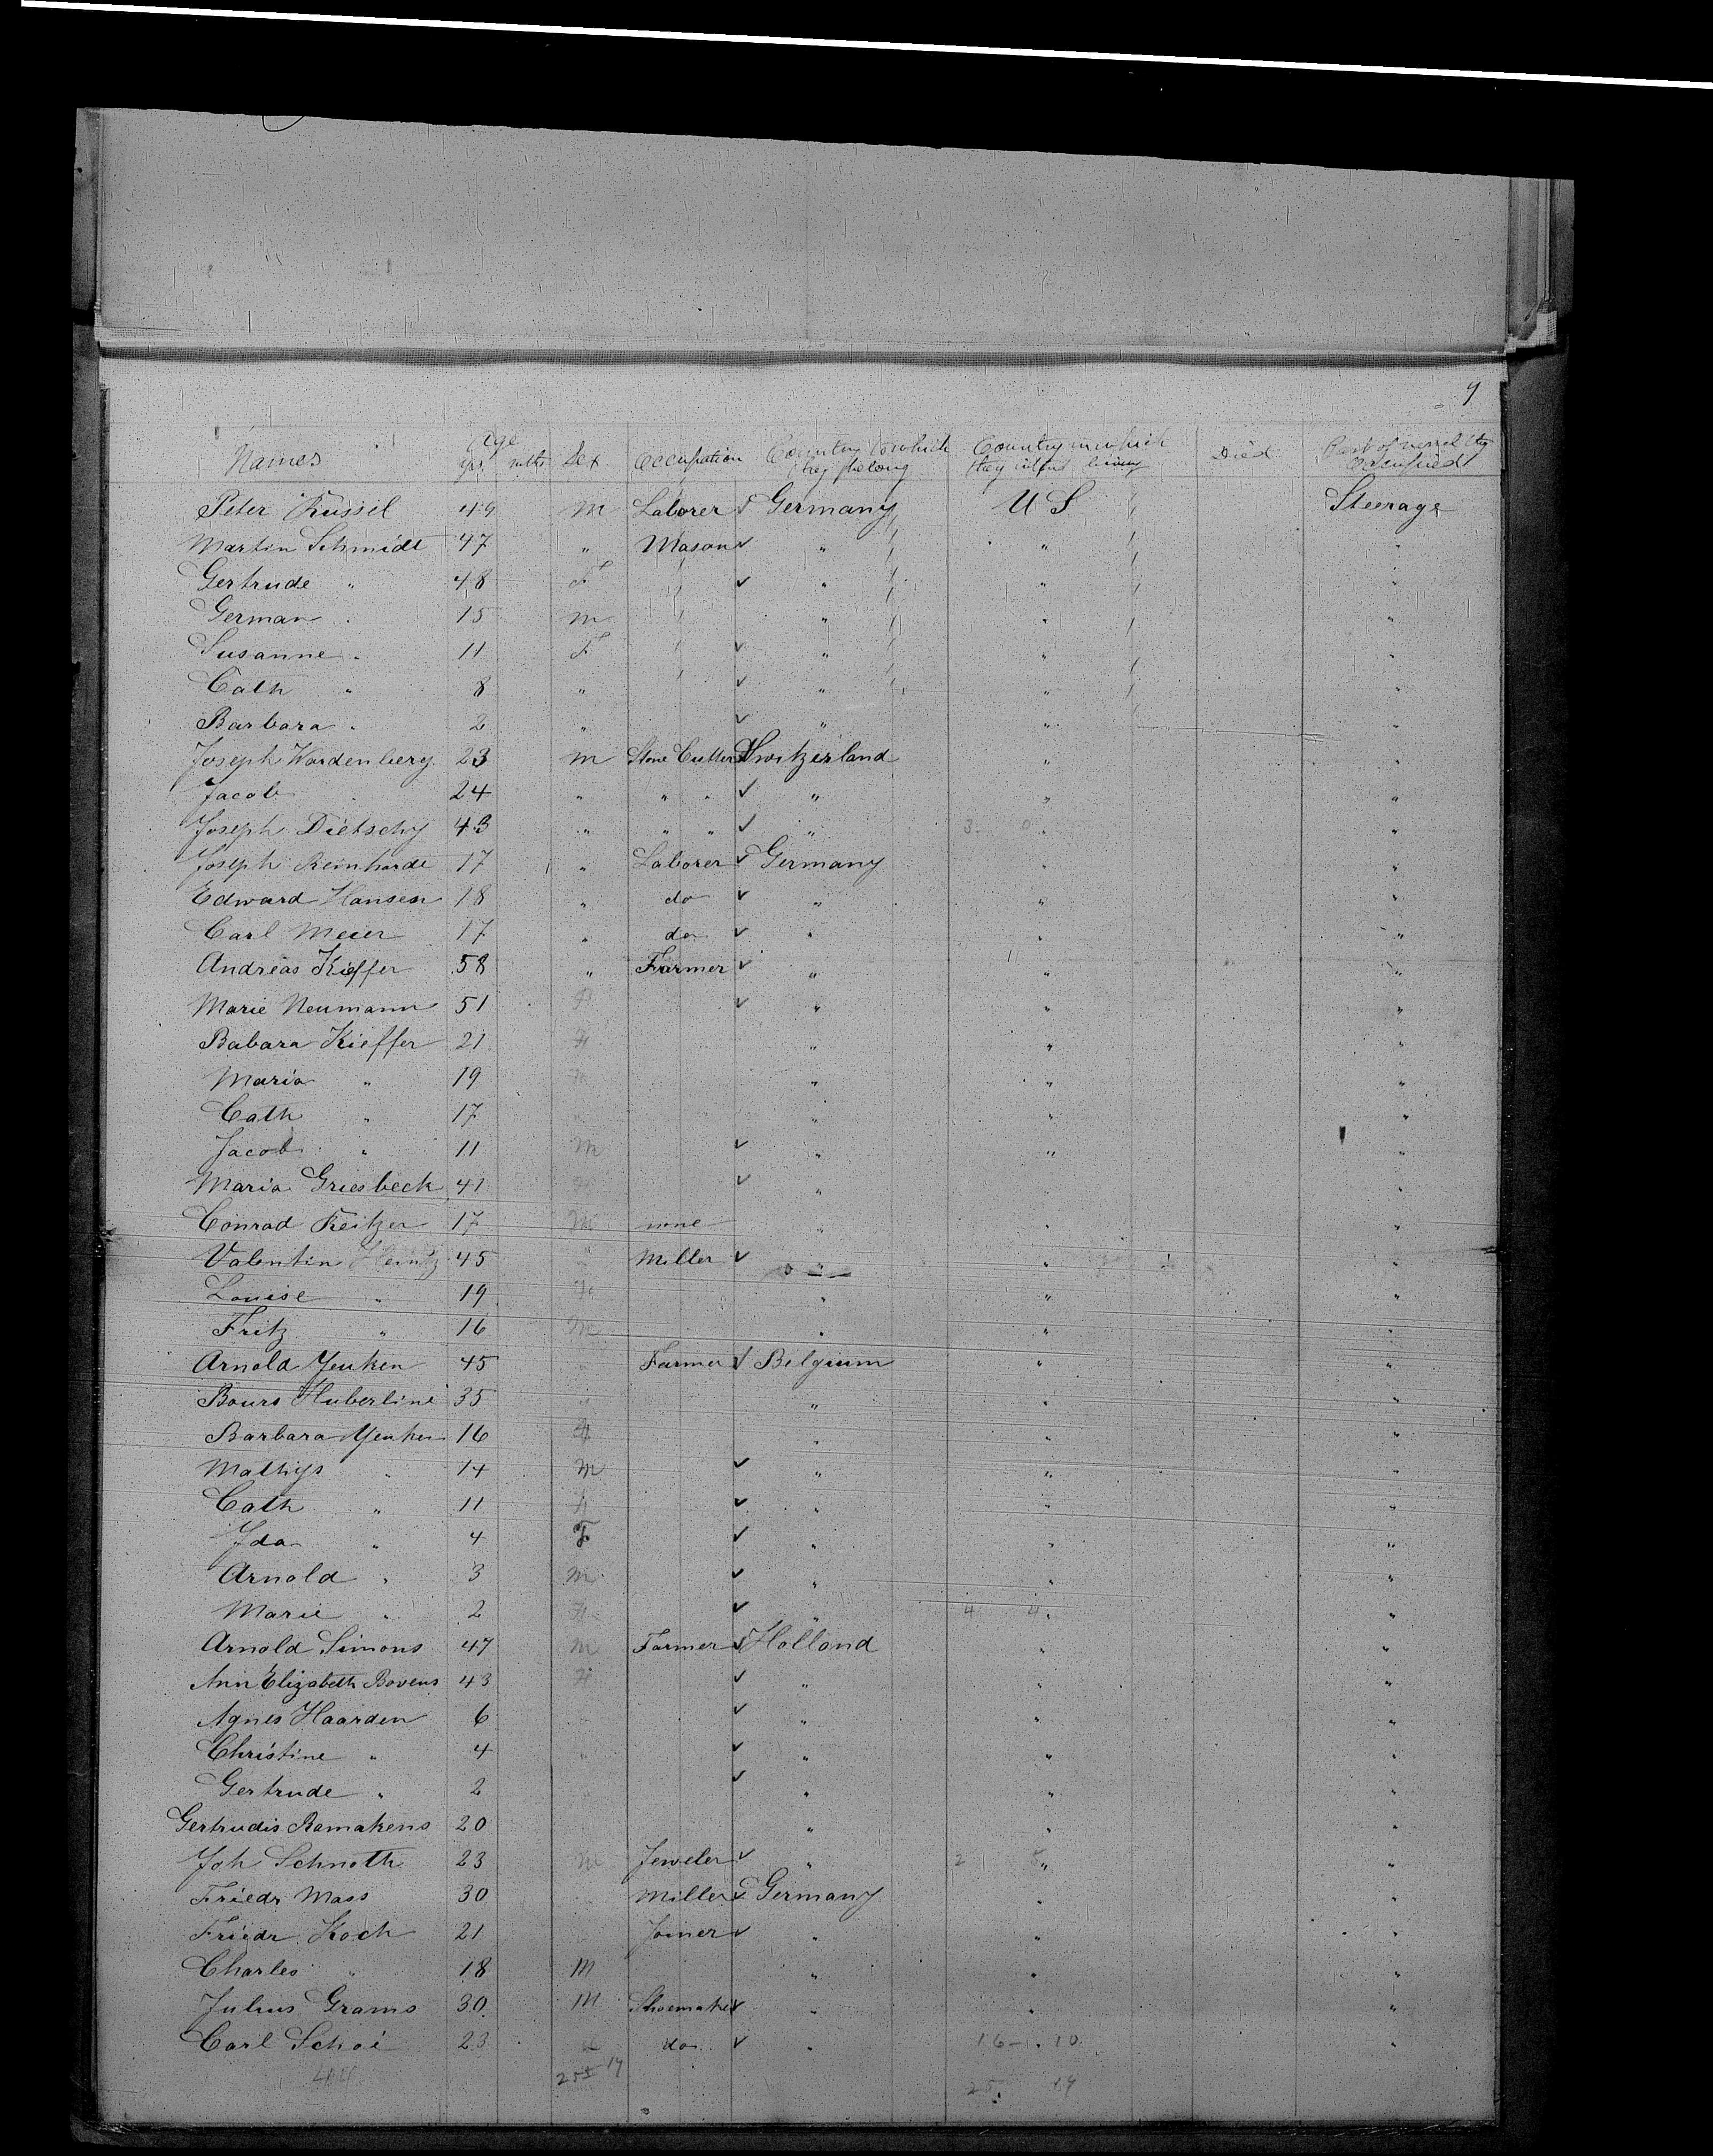 9
Names Age yrs. mths Sex Occupation Country to which they belong Country in which they intend living Died Part of vessel they Occupied
Peter Russel 49 M Laborer ✓ Germany U S Steerage
Martin Schmidt 47 " Mason ✓ " " "
Gertrude " 48 F ✓ " " "
German " 15 M " " "
Susanne " 11 F ✓ " " "
Cath " 8 " ✓ " " "
Barbara " 2 " ✓ " " "
Joseph Wardenberg 23 M Stone Cutter Switzerland " "
Jacob " 24 " " " ✓ " " "
Joseph Dietschy 43 " " " ✓ " 3. 0 " "
Joseph Reinharde 17 " Laborer ✓ Germany " "
Edward Hansen 18 " do ✓ " " "
Carl Meier 17 " do ✓ " " "
Andreas Kieffer 58 " Farmer ✓ " " "
Marie Neumann 51 F ✓ " " "
Babara Kieffer 21 F " " "
Maria " 19 " " "
Cath " 17 " " " "
Jacob " 11 M ✓ " " "
Maria Griesbeck 41 F ✓ " " "
Conrad Reitzer 17 M none " " "
Valentin Heintz 45 " Miller ✓ " " "
Louise " 19 F " " "
Fritz " 16 M " " "
Arnold Yenken 45 " Farmer ✓ Belgium " "
Bours Huberline 35 " " " "
Barbara Yenken 16 F " " "
Mathys " 14 M ✓ " " "
Cath " 11 F ✓ " " "
Ida " 4 F ✓ " " "
Arnold " 3 M ✓ " " "
Marie " 2 F ✓ " 4 4 " "
Arnold Simons 47 M Farmer ✓ Holland " "
Ann Elizabeth Bovens 43 F ✓ " " "
Agnes Haarden 6 " ✓ " " "
Christine " 4 " ✓ " " "
Gertrude " 2 " ✓ " " "
Gertrudis Ramakens 20 " " "
Joh Schnoth 23 M Jeweler ✓ " 2 5 " "
Friedr Mass 30 " Miller ✓ Germany " "
Friedr. Koch 21 Joiner ✓ " " "
Charles " 18 M " " "
Julius Grams 30 M Shoemaker ✓ " " "
Carl Schoi 23 do ✓ " 16 - 10 "
44 25 19 25. 19